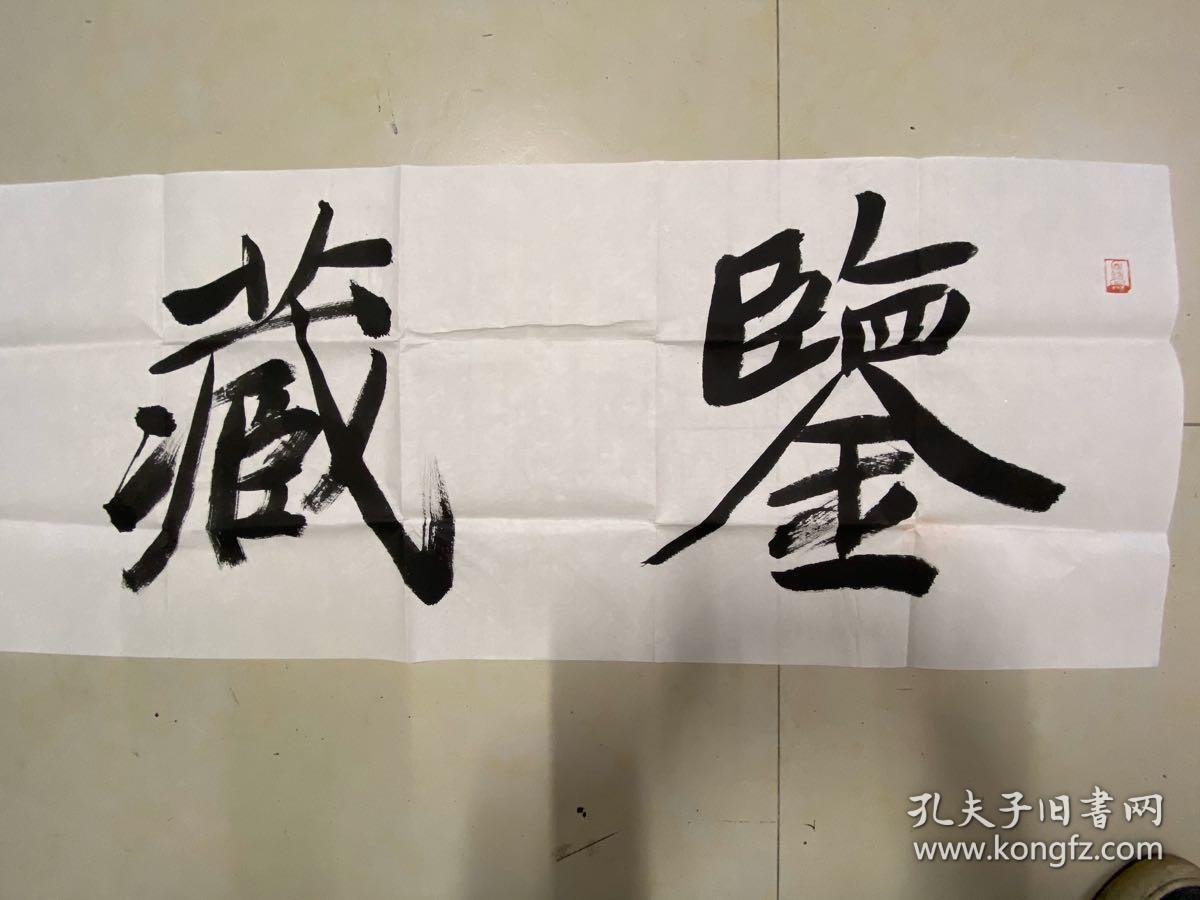 鑒藏
孔夫子旧书网
www.kongfz.com